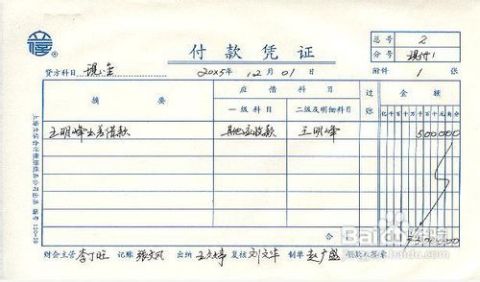 总号 2
付款凭证
分号 现付1
贷方科目 现金 20X5年 12月 01日 附件 1 张
摘要 应借科目 过账 金额
一级科目 二级及明细科目 亿千百十万千百十元角分
王明峰出差借款 其他应收款 王明峰 500000
合计
财会主管 李丁旺 记账 出纳 复核 制单 赵广盛 领款人签章
Baidu经验